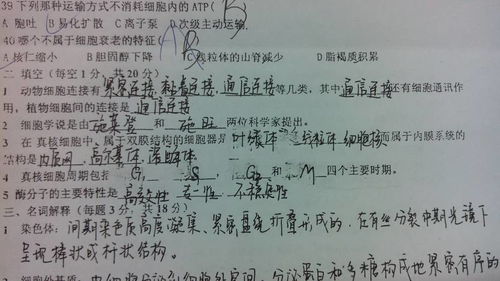 39 下列那种运输方式不消耗细胞内的ATP( B
A 胞吐 B 易化扩散 C 离子泵 D 次级主动运输
40 哪个不属于细胞衰老的特征(
A 核仁缩小 B 胆固醇下降 C 线粒体的山脊减少 D 脂褐质积累
二 填空(每空1分,共20分)
1 动物细胞连接有 紧密连接、粘着连接、通信连接 等几类,其中 通信连接 还有细胞通讯作
用,植物细胞间的连接是 通信连接
2 细胞学说是由 施莱登 和 施旺 两位科学家提出。
3 在真核细胞中、属于双膜结构的细胞器是 叶绿体 线粒体 细胞核 而属于内膜系统的
结构是 内质网、高尔基体、溶酶体
4 真核细胞周期包括 G₁ S G₂ 和 M 四个主要时期。
5 酶分子的主要特性是 高效性 专一性 不稳定性
三、名词解释(每题3分,共18分)
1 染色体:间期染色质高度凝集、紧密盘绕折叠形成的,在有丝分裂中期光镜下
呈现棒状或杆状结构。
2 细胞外基质:由细胞分泌到细胞外空间,分泌蛋白和多糖构成地紧密有序的